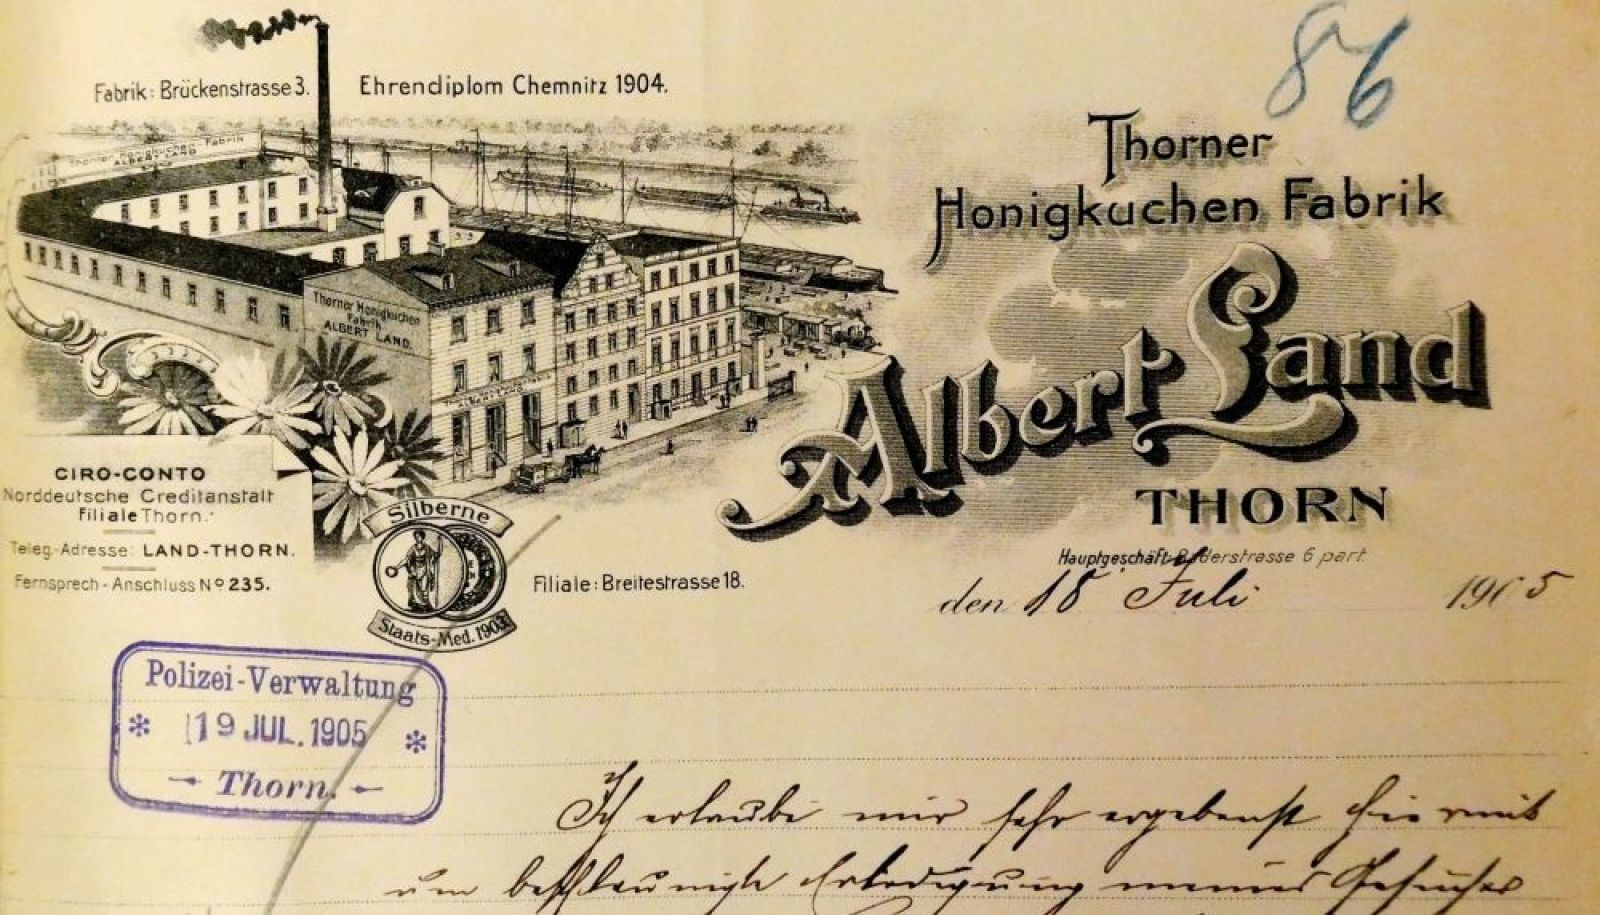 86
Fabrik: Brückenstrasse 3.
Ehrendiplom Chemnitz 1904.
Thorner Honigkuchen Fabrik
ALBERT LAND
Thorner Honigkuchen
Fabrik
ALBERT LAND.
Thorner
Honigkuchen Fabrik
Albert Land
THORN
Hauptgeschäft: Baderstrasse 6 part.
GIRO-CONTO
Norddeutsche Creditanstalt
Filiale Thorn.
Teleg.-Adresse: LAND-THORN.
Fernsprech-Anschluss No 235.
Silberne
Staats-Med. 1903
Filiale: Breitestrasse 18.
den 18 Juli 1905
Polizei-Verwaltung
* 19 JUL. 1905 *
Thorn.
Ich erlaube mir sehr ergebenst hiermit
um beschleunigte Erledigung meines Gesuches